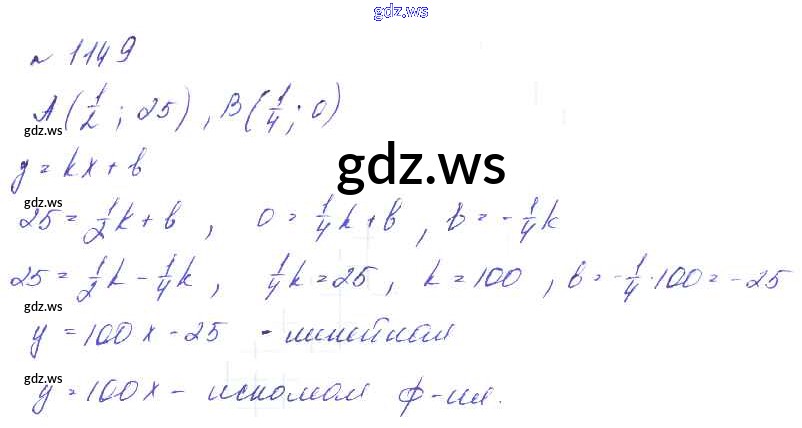 gdz.ws
№ 1149
A(1/2; 25), B(1/4; 0)
gdz.ws
gdz.ws
y = kx + b
gdz.ws
25 = 1/2k + b, 0 = 1/4k + b, b = -1/4k
25 = 1/2k - 1/4k, 1/4k = 25, k = 100, b = -1/4·100 = -25
gdz.ws
y = 100x - 25 - линейная
gdz.ws
y = 100x - искомая ф-ия.